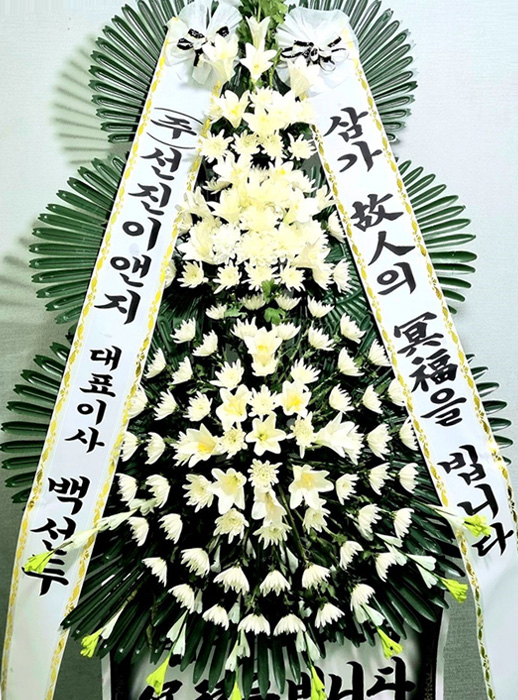 (주)선진이앤지 대표이사 백선두
삼가 故人의 冥福을 빕니다